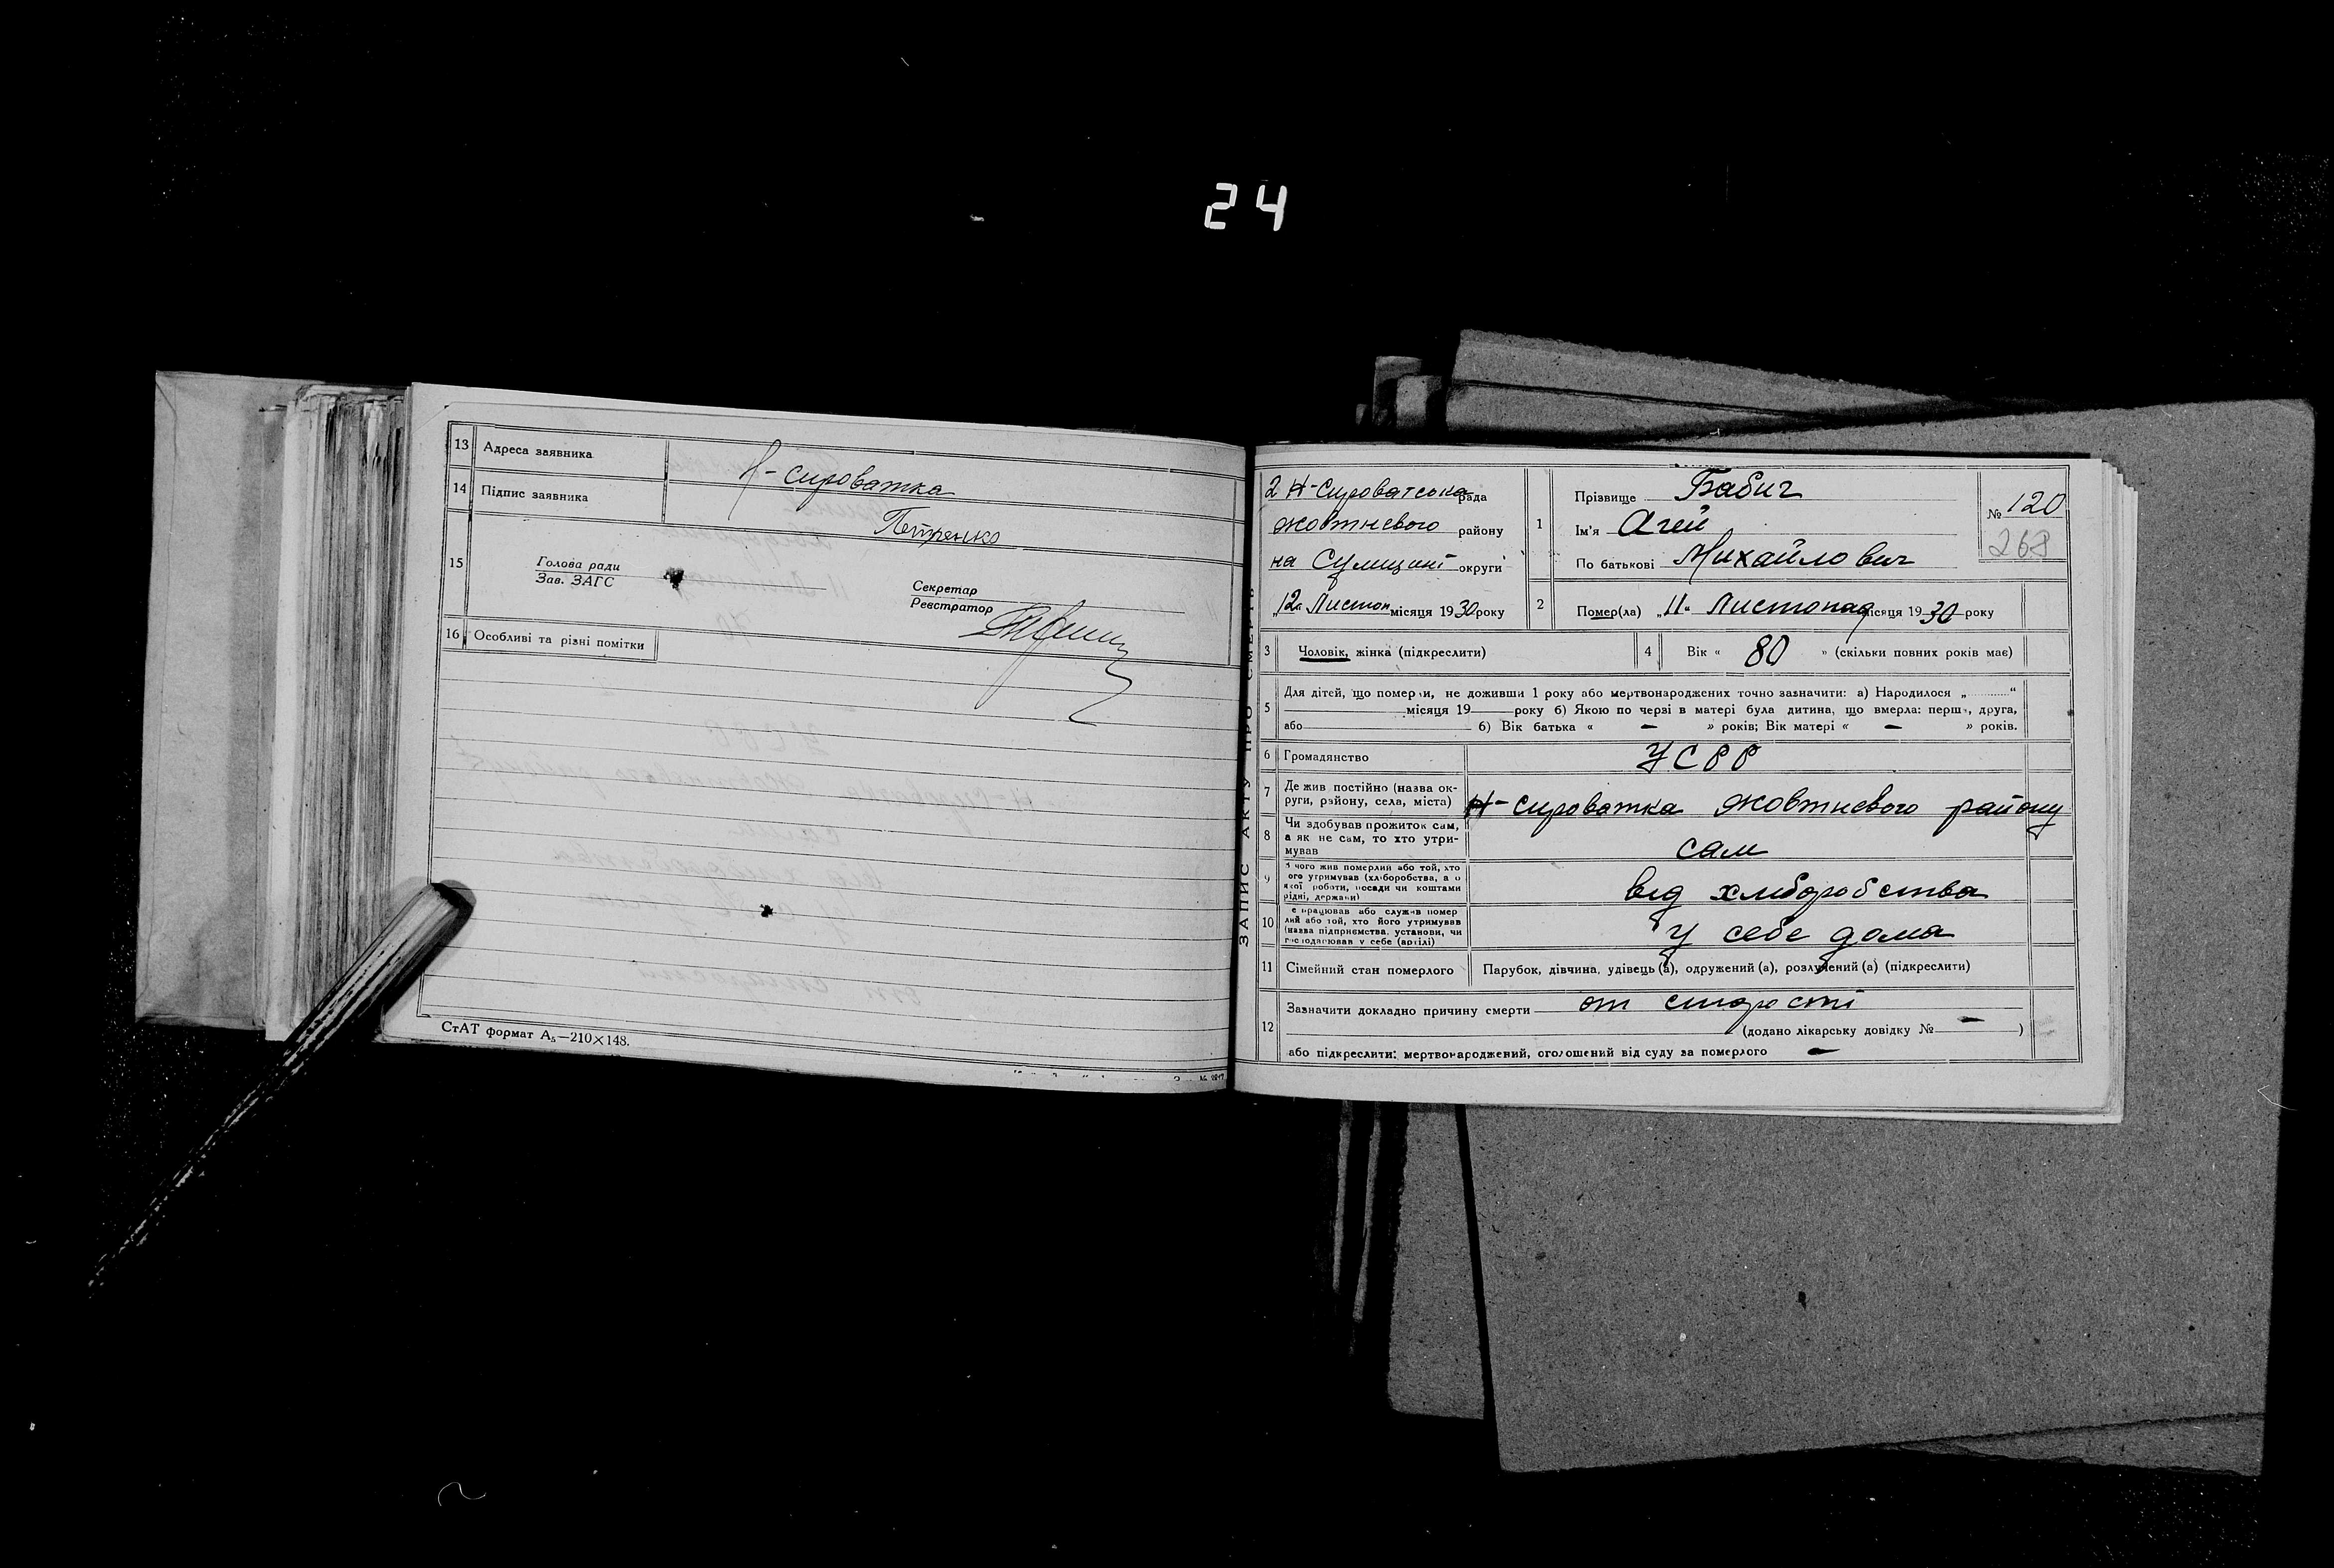 24
13 Адреса заявника Н-сироватка
14 Підпис заявника Петренко
15 Голова ради
Зав. ЗАГС
Секретар
Реєстратор
16 Особливі та різні помітки
СтАТ формат А₅—210×148.
ЗАПИС АКТУ ПРО СМЕРТЬ
2 Н-Сироватська рада
жовтневого району
на Сумщині округи
„12" Листоп місяця 1930 року
1 Прізвище Бабич
Ім'я Агей
По батькові Михайлович
№ 120
268
2 Помер(ла) „11" Листопад місяця 1930 року
3 Чоловік, жінка (підкреслити)
4 Вік « 80 » (скільки повних років має)
5 Для дітей, що померли, не доживши 1 року або мертвонароджених точно зазначити: а) Народилося „ "
місяця 19 — року б) Якою по черзі в матері була дитина, що вмерла: перша, друга,
або — б) Вік батька « — » років; Вік матері « — » років.
6 Громадянство УСРР
7 Де жив постійно (назва ок-
руги, району, села, міста) Н-сироватка жовтневого району
8 Чи здобував прожиток сам,
а як не сам, то хто утри-
мував сам
9 з чого жив померлий або той, хто
його утримував (хліборобства, а о
якої роботи, посади чи коштами
рідні, держави) від хліборобства
10 е працював або служив помер
лий або той, хто його утримував
(назва підприємства, установи, чи
господарював у себе (артілі) У себе дома
11 Сімейний стан померлого Парубок, дівчина, удівець (а), одружений (а), розлучений (а) (підкреслити)
12 Зазначити докладно причину смерти от старості
(додано лікарську довідку № — )
або підкреслити: мертвонароджений, оголошений від суду за померлого —